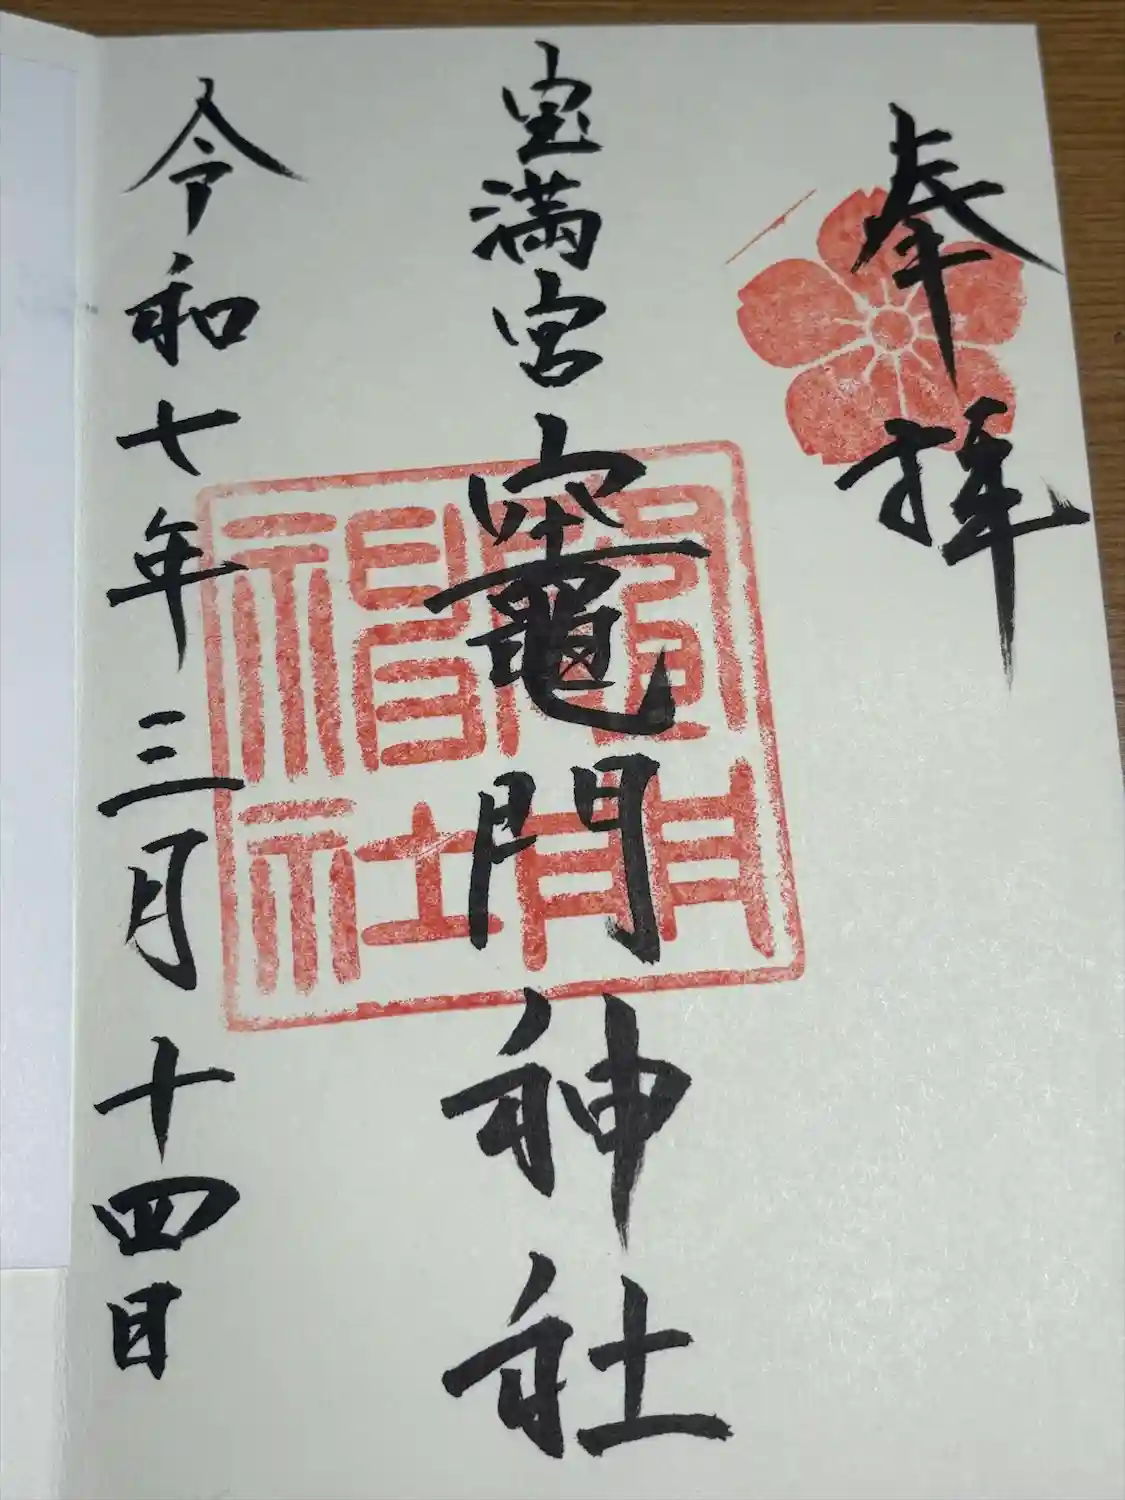 奉拝
宝満宮
竈門神社
令和七年三月十四日
竈門神社